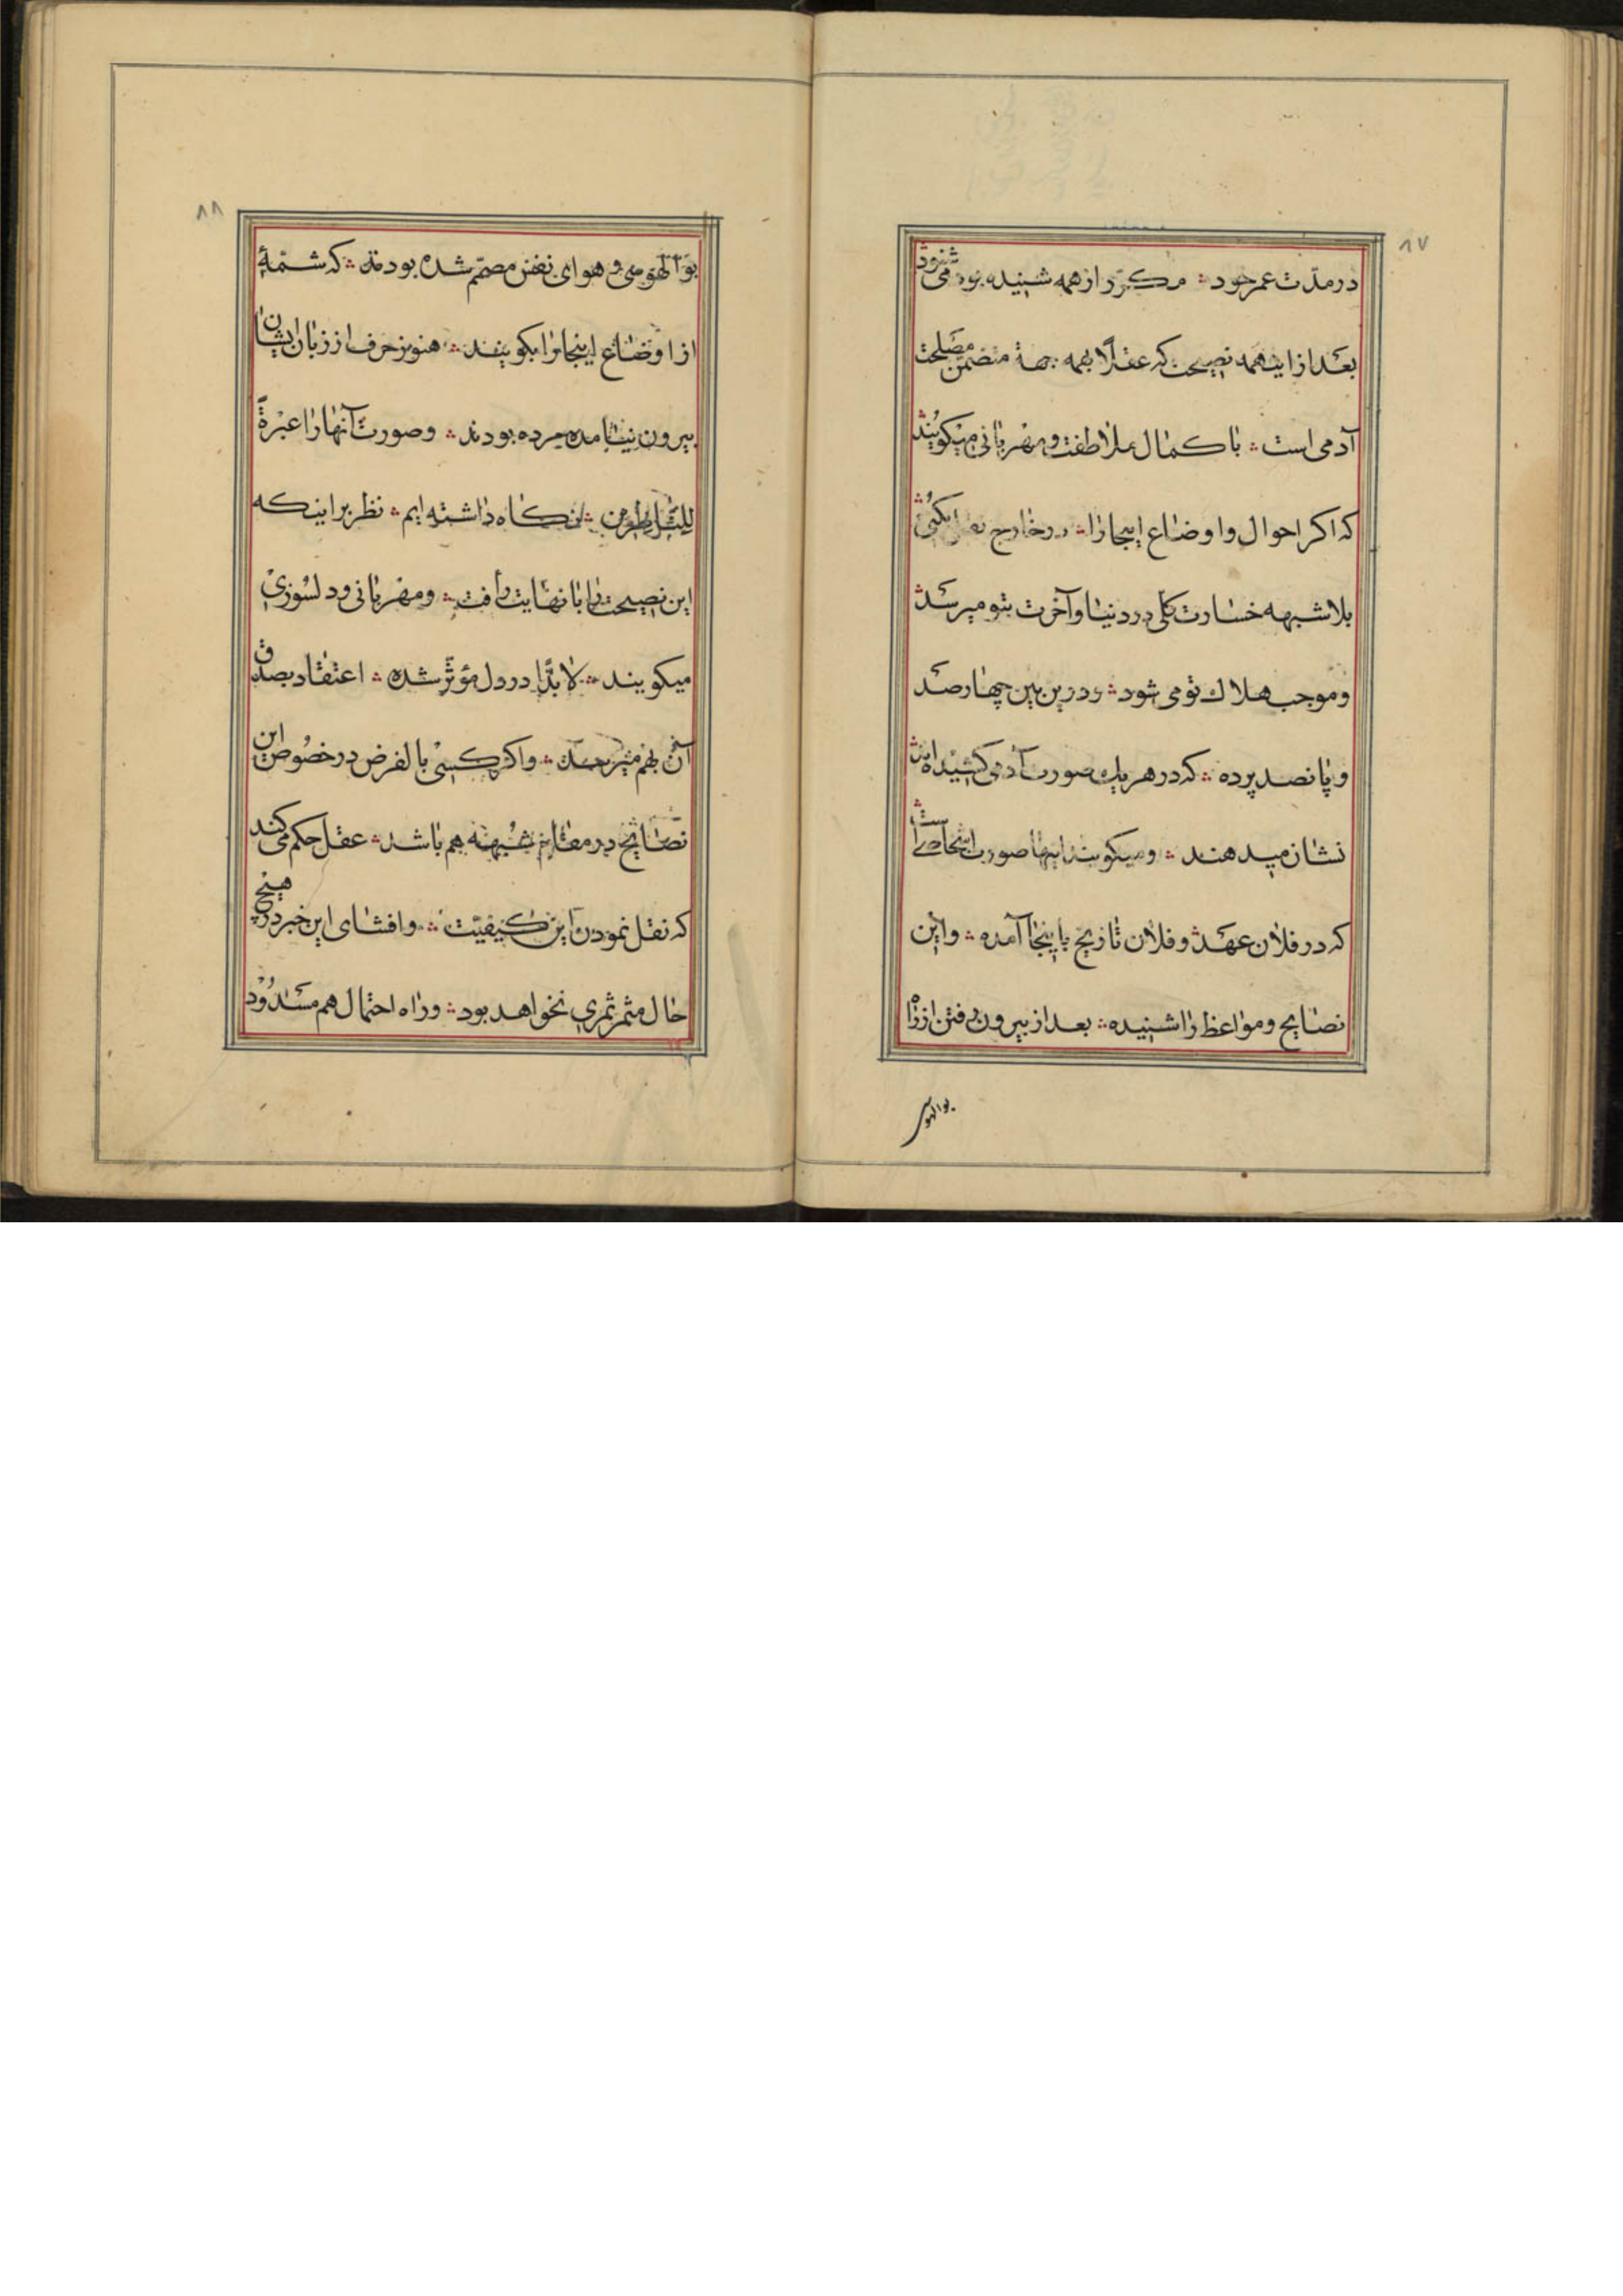 ۸۷
در مدّت عمر خود ؞ مکرّر از همه شنیده بود می شنود ؞
بعد از اینهمه نصیحت که عقلاً بهمه جهة متضمّن مصلحت
آدمی است ؞ با کمال ملاطفت و مهربانی میکویند ؞
که اکر احوال و اوضاع اینجا را ؞ در خارج نقل بکنی ؞
بلا شبهه خسارت کلی در دنیا و آخرت بتو میرسد ؞
و موجب هلاك تو می شود ؞ و در بین چهار صد
و پانصد پرده ؞ که در هر یك صورت آدمی کشیده اند ؞
نشان میدهند ؞ و میکویند اینها صورت اشخاصی است ؞
که در فلان عهد و فلان تاریخ باینجا آمده ؞ و این
نصایح و مواعظ را شنیده ؞ بعد از بیرون رفتن از راه
بوالهوسی
۸۸
بوالهوسی و هوای نفس مصمّم شده بودند ؞ که شمّهٔ
از اوضاع اینجا را بکویند ؞ هنوز حرف از زبان ایشان
بیرون نیامده مرده بودند ؞ و صورت آنها را عبرةً
للنّاظرین ؞ نکاه داشته ایم ؞ نظر بر اینکه
این نصیحت را با نهایت رأفت ؞ و مهربانی و دلسوزی
میکویند ؞ لابدّا در دل مؤثّر شده ؞ اعتقاد بصدق
آن بهم میرسد ؞ و اکر کسی بالفرض در خصوص این
نصایح در مقام شبهه هم باشد ؞ عقل حکم می کند
که نقل نمودن این کیفیّت ؞ و افشای این خبر در هیچ
حال مثمر ثمری نخواهد بود ؞ و راه احتمال هم مسدود